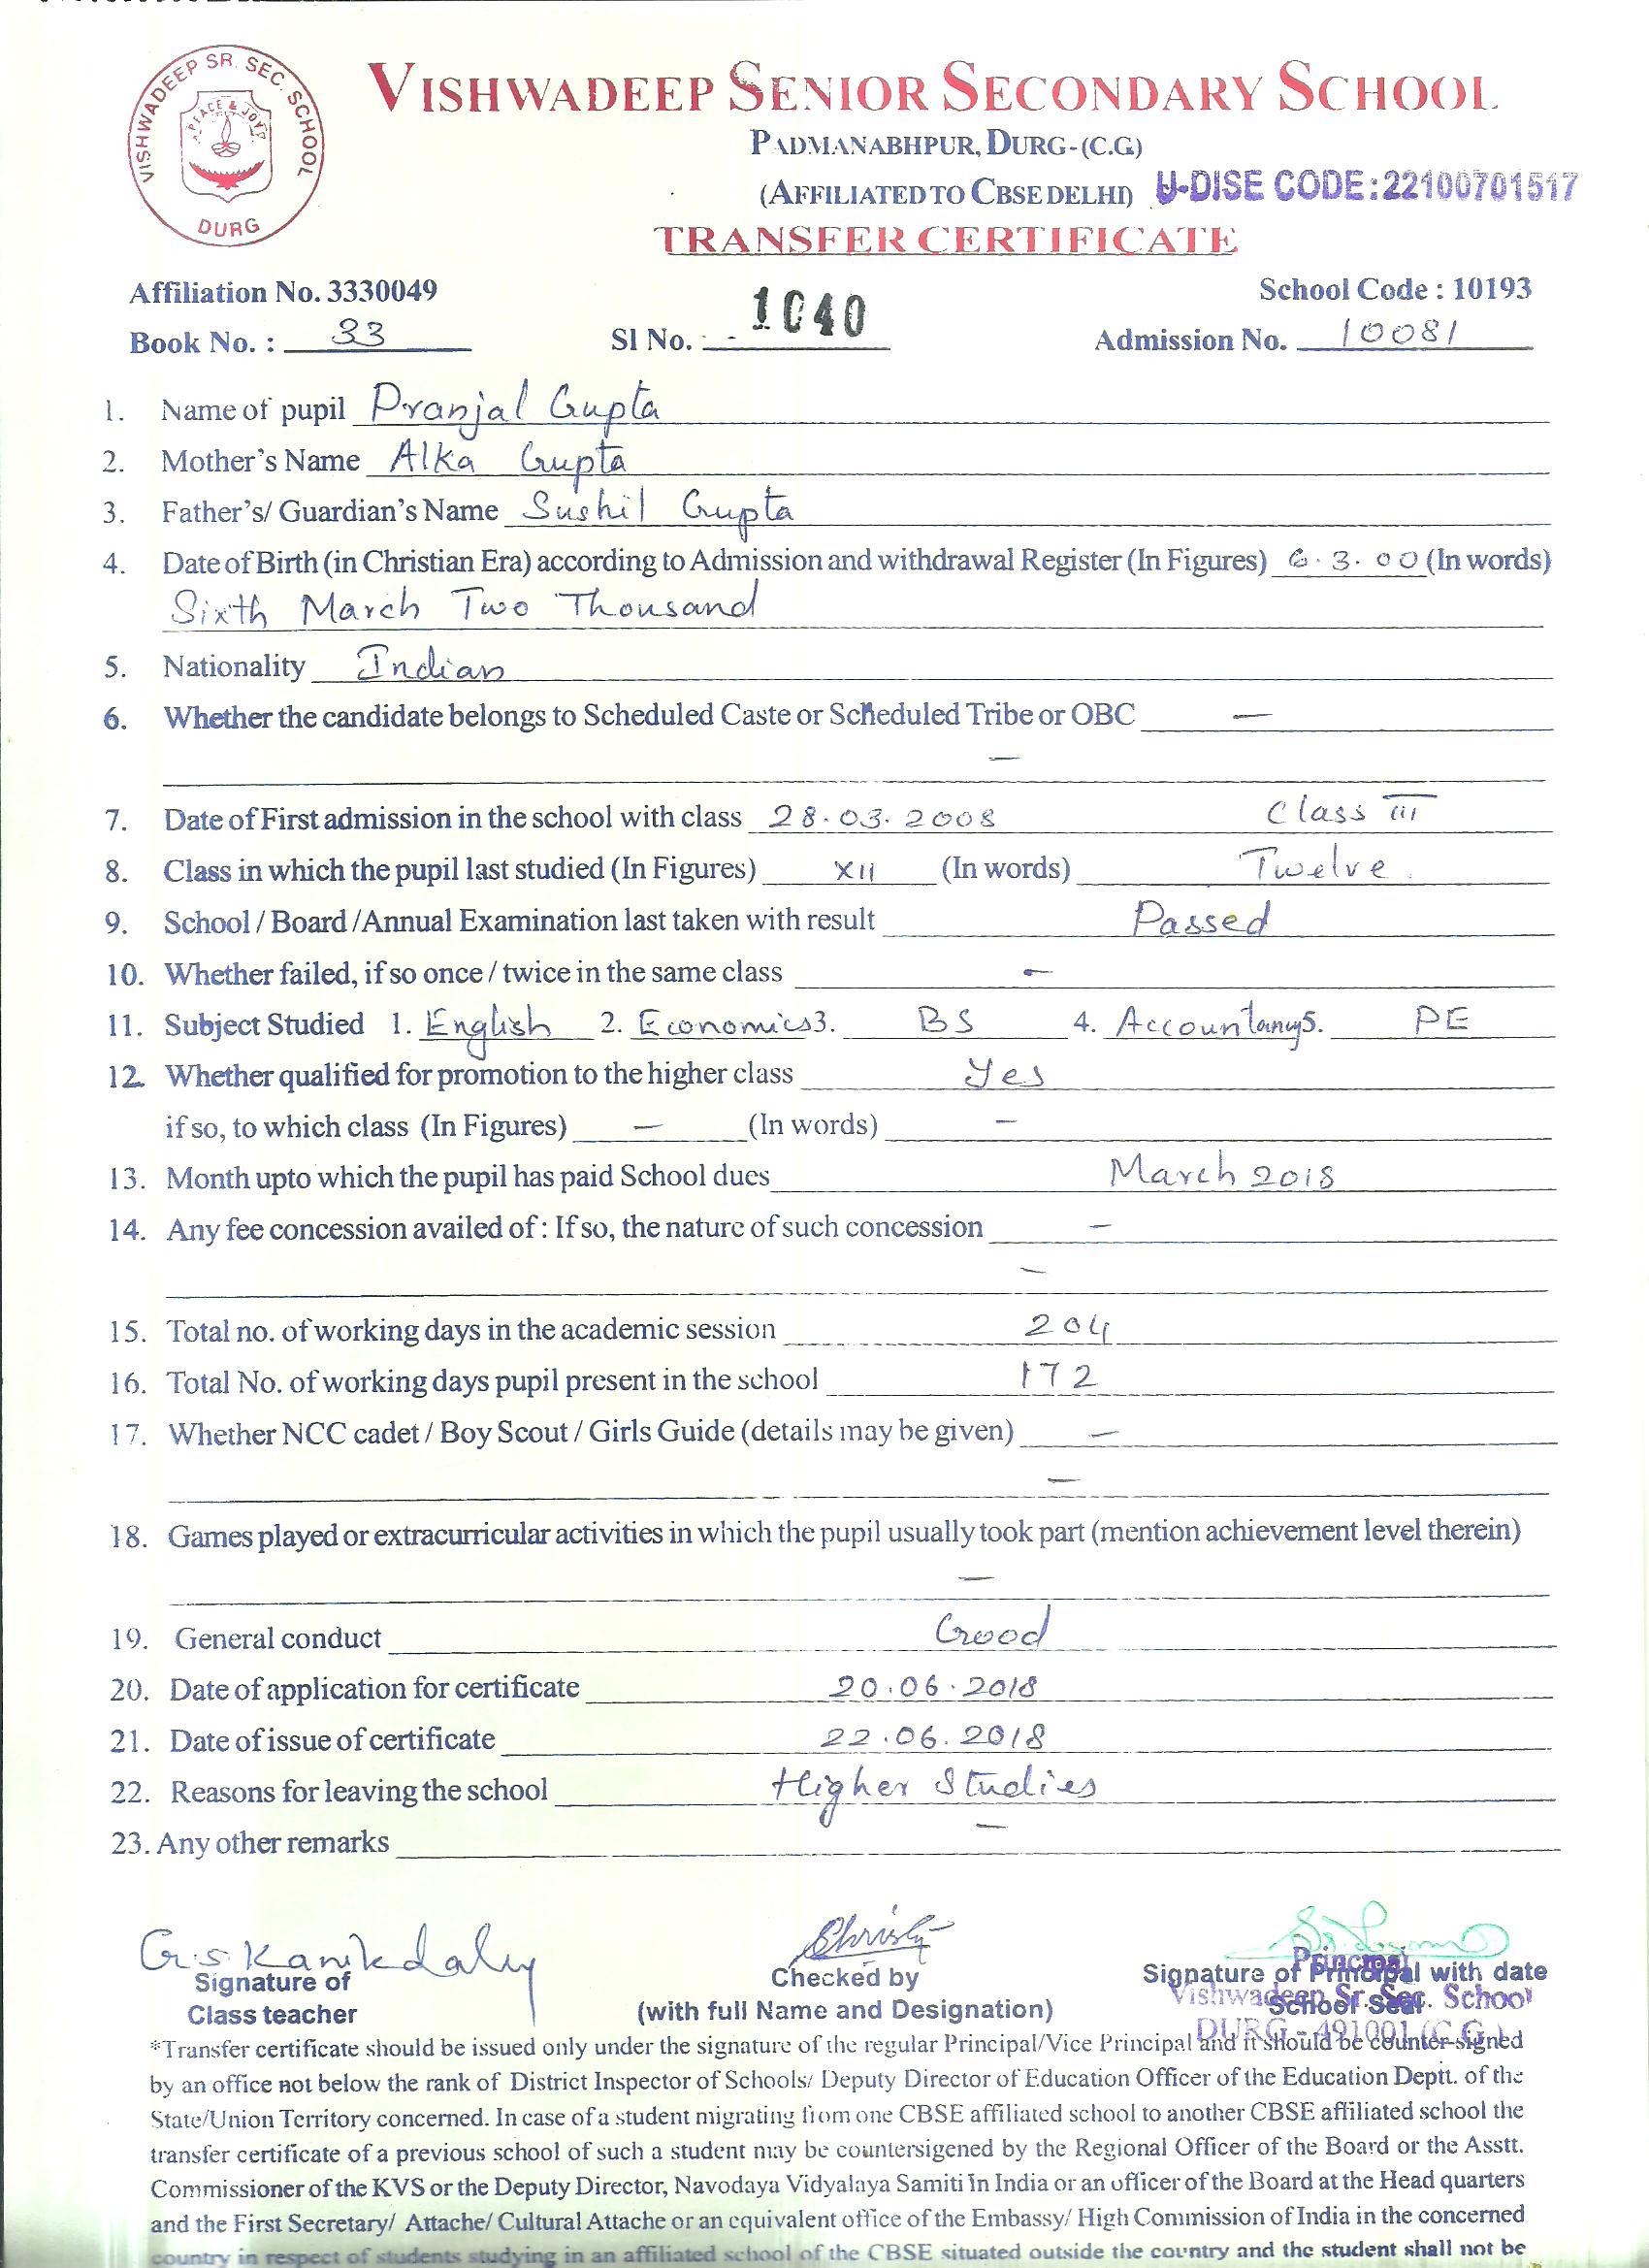 VISHWADEEP SR. SEC. SCHOOL
PEACE & JOY
DURG
VISHWADEEP SENIOR SECONDARY SCHOOL
PADMANABHPUR, DURG-(C.G.)
(AFFILIATED TO CBSE DELHI) U-DISE CODE:22100701517
TRANSFER CERTIFICATE
Affiliation No. 3330049 School Code : 10193
Book No. : 33 Sl No. 1040 Admission No. 10081
1. Name of pupil Pranjal Gupta
2. Mother's Name Alka Gupta
3. Father's/ Guardian's Name Sushil Gupta
4. Date of Birth (in Christian Era) according to Admission and withdrawal Register (In Figures) 6.3.00 (In words)
Sixth March Two Thousand
5. Nationality Indian
6. Whether the candidate belongs to Scheduled Caste or Scheduled Tribe or OBC —
—
7. Date of First admission in the school with class 28.03.2008 Class III
8. Class in which the pupil last studied (In Figures) XII (In words) Twelve
9. School / Board /Annual Examination last taken with result Passed
10. Whether failed, if so once / twice in the same class —
11. Subject Studied 1. English 2. Economics 3. BS 4. Accountany 5. PE
12. Whether qualified for promotion to the higher class Yes
if so, to which class (In Figures) — (In words) —
13. Month upto which the pupil has paid School dues March 2018
14. Any fee concession availed of : If so, the nature of such concession —
—
15. Total no. of working days in the academic session 204
16. Total No. of working days pupil present in the school 172
17. Whether NCC cadet / Boy Scout / Girls Guide (details may be given) —
—
18. Games played or extracurricular activities in which the pupil usually took part (mention achievement level therein)
—
19. General conduct Good
20. Date of application for certificate 20.06.2018
21. Date of issue of certificate 22.06.2018
22. Reasons for leaving the school Higher Studies
23. Any other remarks —
G.S. Kanikdaly Christy
Signature of Checked by Signature of Principal with date
Class teacher (with full Name and Designation) School Seal
Principal
Vishwadeep Sr. Sec. School
DURG - 491001 (C.G.)
*Transfer certificate should be issued only under the signature of the regular Principal/Vice Principal and it should be counter-signed
by an office not below the rank of District Inspector of Schools/ Deputy Director of Education Officer of the Education Deptt. of the
State/Union Territory concerned. In case of a student migrating from one CBSE affiliated school to another CBSE affiliated school the
transfer certificate of a previous school of such a student may be countersigned by the Regional Officer of the Board or the Asstt.
Commissioner of the KVS or the Deputy Director, Navodaya Vidyalaya Samiti in India or an officer of the Board at the Head quarters
and the First Secretary/ Attache/ Cultural Attache or an equivalent office of the Embassy/ High Commission of India in the concerned
country in respect of students studying in an affiliated school of the CBSE situated outside the country and the student shall not be